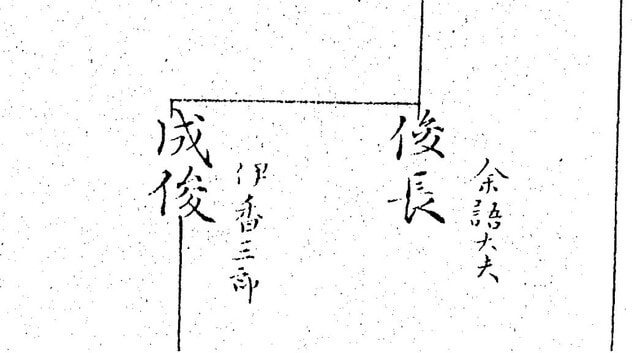 俊長
余語大夫
成俊
伊香三郎